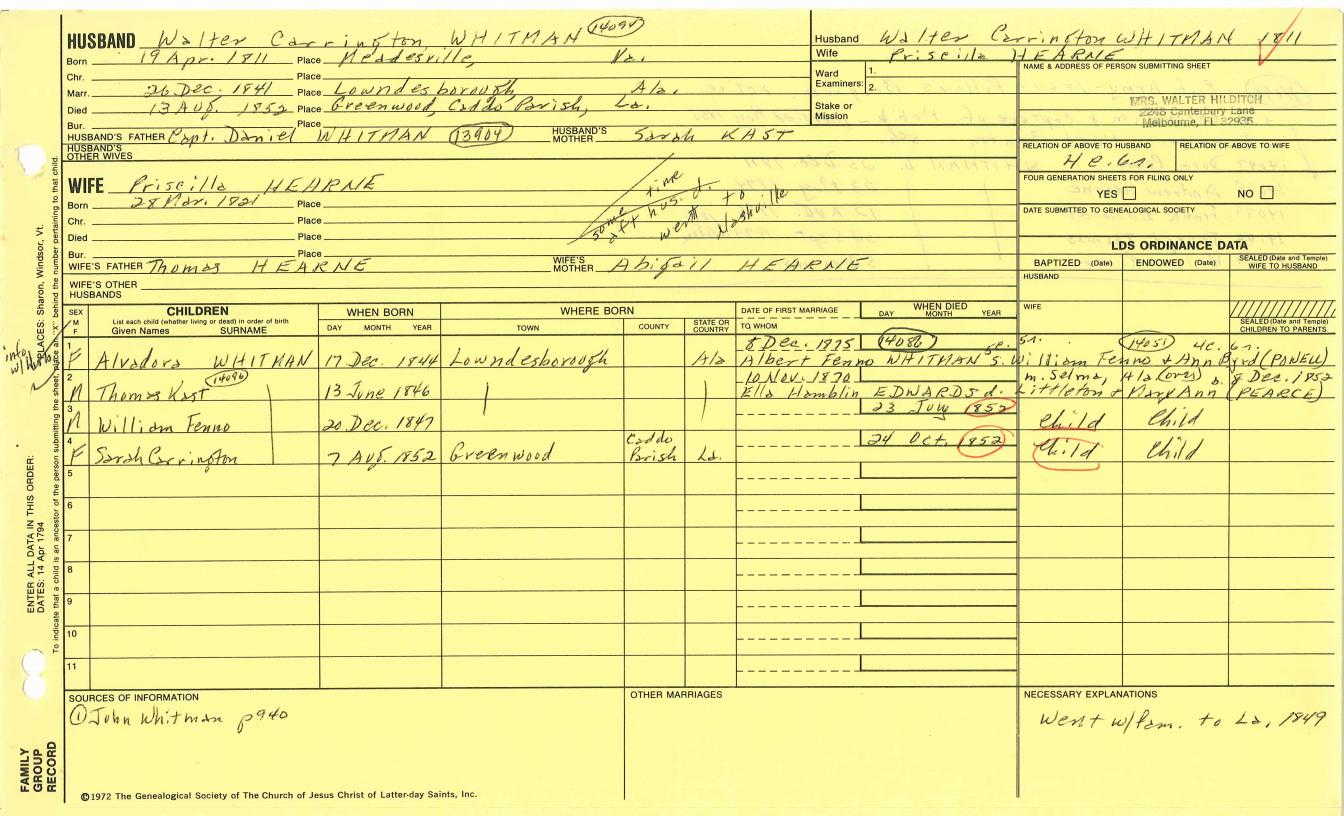 HUSBAND Walter Carrington WHITMAN 14094
Born 19 Apr. 1811 Place Meadesville, Va.
Chr. Place
Marr. 26 Dec. 1841 Place Lowndesborough Ala.
Died 13 Aug. 1852 Place Greenwood, Caddo Parish, La.
Bur. Place
HUSBAND'S FATHER Capt. Daniel WHITMAN 13904 HUSBAND'S MOTHER Sarah KAST
HUSBAND'S OTHER WIVES
WIFE Priscilla HEARNE
Born 28 Mar. 1821 Place
Chr. Place
Died Place
Bur. Place
some time
aft husd.
went to
Nashville
WIFE'S FATHER Thomas HEARNE WIFE'S MOTHER Abigail HEARNE
WIFE'S OTHER HUSBANDS
Husband Walter Carrington WHITMAN 1811
Wife Priscilla HEARNE
Ward Examiners: 1.
2.
Stake or Mission
NAME & ADDRESS OF PERSON SUBMITTING SHEET
MRS. WALTER HILDITCH
2248 Canterbury Lane
Melbourne, FL 32935
RELATION OF ABOVE TO HUSBAND RELATION OF ABOVE TO WIFE
4c. 6r.
FOUR GENERATION SHEETS FOR FILING ONLY
YES NO
DATE SUBMITTED TO GENEALOGICAL SOCIETY
LDS ORDINANCE DATA
BAPTIZED (Date) ENDOWED (Date) SEALED (Date and Temple) WIFE TO HUSBAND
HUSBAND
WIFE
SEALED (Date and Temple) CHILDREN TO PARENTS
SEX M F
CHILDREN
List each child (whether living or dead) in order of birth
Given Names SURNAME
WHEN BORN
DAY MONTH YEAR
WHERE BORN
TOWN COUNTY STATE OR COUNTRY
DATE OF FIRST MARRIAGE
TO WHOM
WHEN DIED
DAY MONTH YEAR
1 8 Dec. 1875 14086 14051
F Alvadora WHITMAN 17 Dec. 1844 Lowndesborough Ala Albert Fenno WHITMAN s. William Fenno + Ann Byrd (POWELL)
2 14096 10 Nov. 1870 m. Selma, Ala (over) b. 8 Dec. 1852
M Thomas Kast 13 June 1846 Ella Hamblin EDWARDS d. Littleton + Mary Ann (PEARCE)
3 23 July 1852
M William Fenno 20 Dec. 1847 Child Child
4 Caddo 24 Oct. 1852
F Sarah Carrington 7 Aug. 1852 Greenwood Parish La. Child Child
5
6
7
8
9
10
11
SOURCES OF INFORMATION
① John Whitman p940
OTHER MARRIAGES
NECESSARY EXPLANATIONS
Went w/fam. to La, 1849
©1972 The Genealogical Society of The Church of Jesus Christ of Latter-day Saints, Inc.
FAMILY GROUP RECORD
ENTER ALL DATA IN THIS ORDER:
DATES: 14 Apr 1794
PLACES: Sharon, Windsor, Vt.
To indicate that a child is an ancestor of the person submitting the sheet, place an "X" behind the number pertaining to that child.